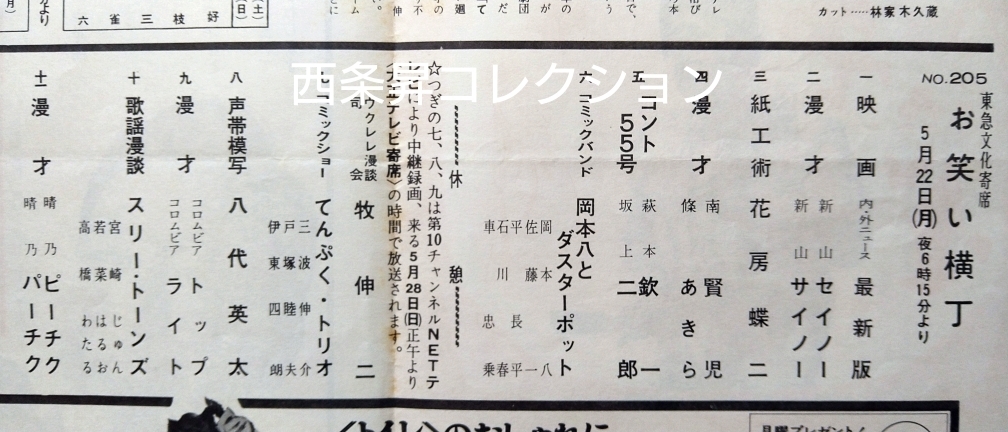 カット……林家木久蔵
六 雀 三 枝 好
NO.205
東急文化寄席
お笑い横丁
5月22日(月)夜6時15分より
一 映画 内・外ニュース 最新版
二 漫才 新山セイノー
新山サイノー
三 紙工術 花房蝶二
四 漫才 南賢児
條あきら
五 コント55号 萩本欽一
坂上二郎
六 コミックバンド 岡本八と
ダスターポット
岡本八
佐藤長一
平 平
石川春
車 忠乗
休憩
☆つぎの七、八、九は第10チャンネルNETテ
レビにより中継録画、来る5月28日(日)正午より
(大正テレビ寄席)の時間で放送されます。
ウクレレ漫談
司会 牧伸二
七 コミックショー てんぷく・トリオ
三波伸介
戸塚睦夫
伊東四朗
八 声帯模写 八代英太
九 漫才 コロムビアトップ
コロムビアライト
十 歌謡漫談 スリー・トーンズ
宮崎じゅん
若菜はるお
高橋わたる
十一 漫才 晴乃ピーチク
晴乃パーチク
西条昇コレクション